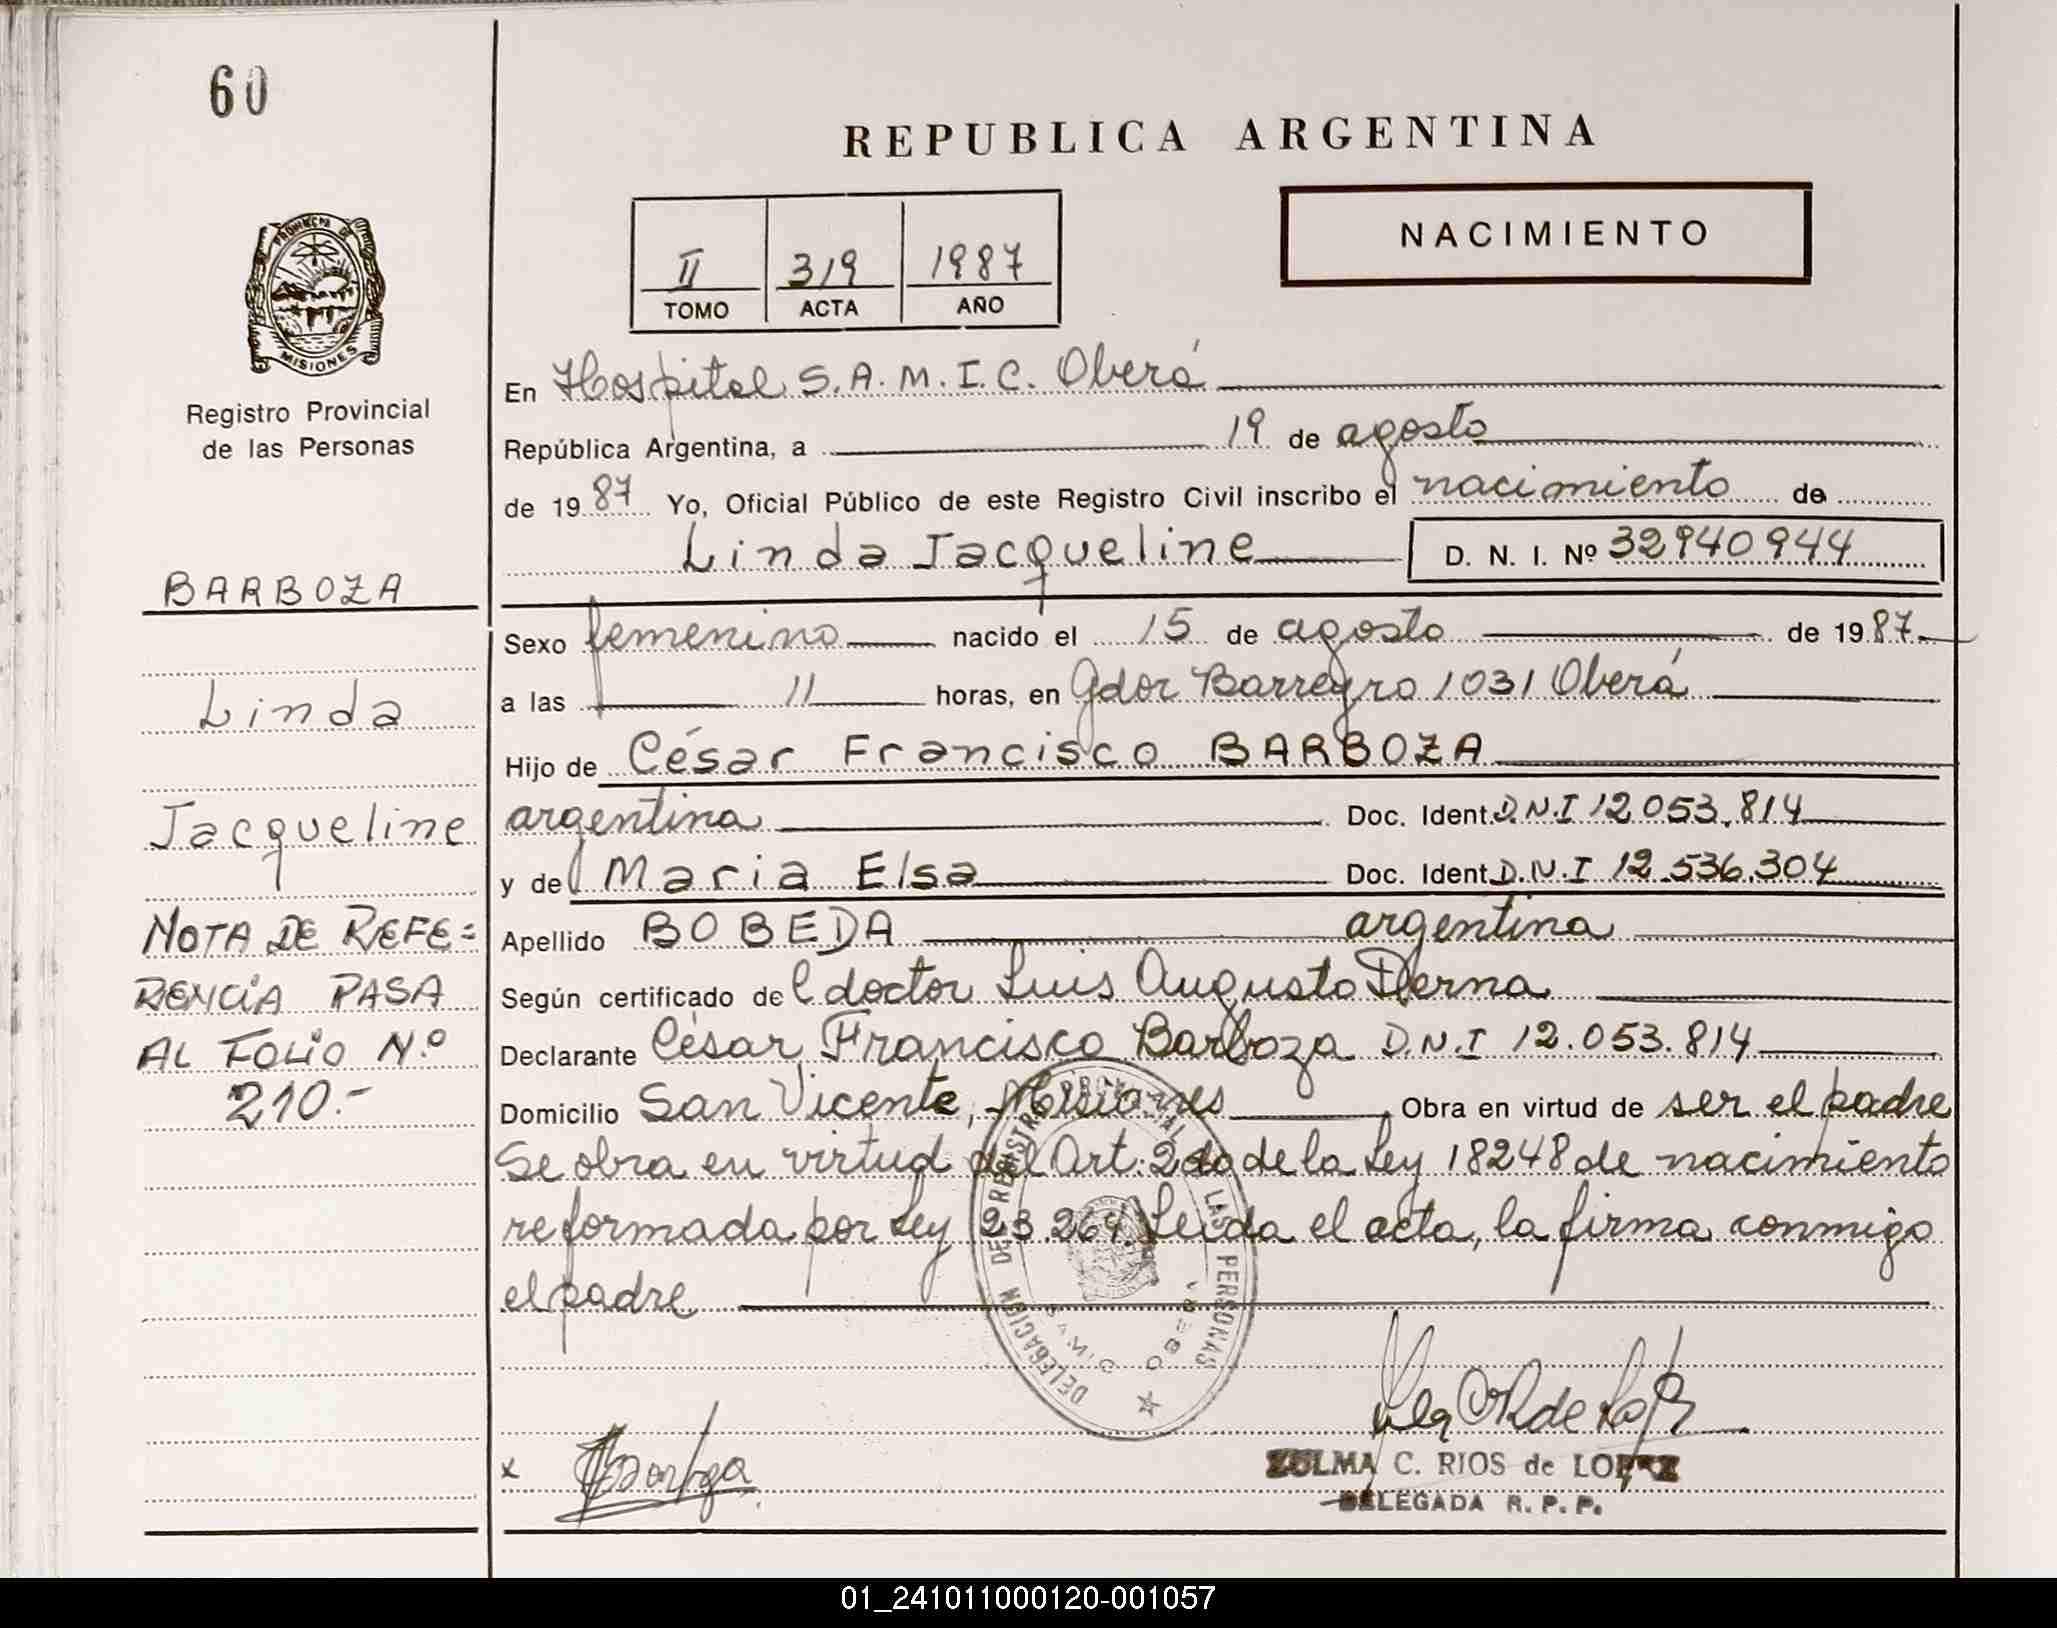 60
REPUBLICA ARGENTINA
NACIMIENTO
II 319 1987
TOMO ACTA AÑO
PROVINCIA DE
MISIONES
Registro Provincial
de las Personas
En Hospital S.A.M.I.C. Oberá
República Argentina, a 19 de agosto
de 1987 Yo, Oficial Público de este Registro Civil inscribo el nacimiento de
Linda Jacqueline D. N. I. Nº 32940944
BARBOZA
Linda
Jacqueline
NOTA DE REFE=
RENCIA PASA
AL FOLIO N.º
210.-
Sexo femenino nacido el 15 de agosto de 1987
a las 11 horas, en Gdor Barreyro 1031 Oberá
Hijo de César Francisco BARBOZA
argentina Doc. Ident. D.N.I 12.053.814
y de Maria Elsa Doc. Ident. D.N.I 12.536.304
Apellido BOBEDA argentina
Según certificado del doctor Luis Augusto Derna
Declarante César Francisco Barboza D.N.I 12.053.814
Domicilio San Vicente, Misiones Obra en virtud de ser el padre
Se obra en virtud del Art. 2do de la Ley 18248 de nacimiento
reformada por Ley 23.264. Leida el acta, la firma conmigo
el padre
DELEGACION DEL REGISTRO PROVINCIAL DE LAS PERSONAS
SAMIC OBERA
x Barboza
ZULMA C. RIOS de LOPEZ
DELEGADA R. P. P.
01_241011000120-001057